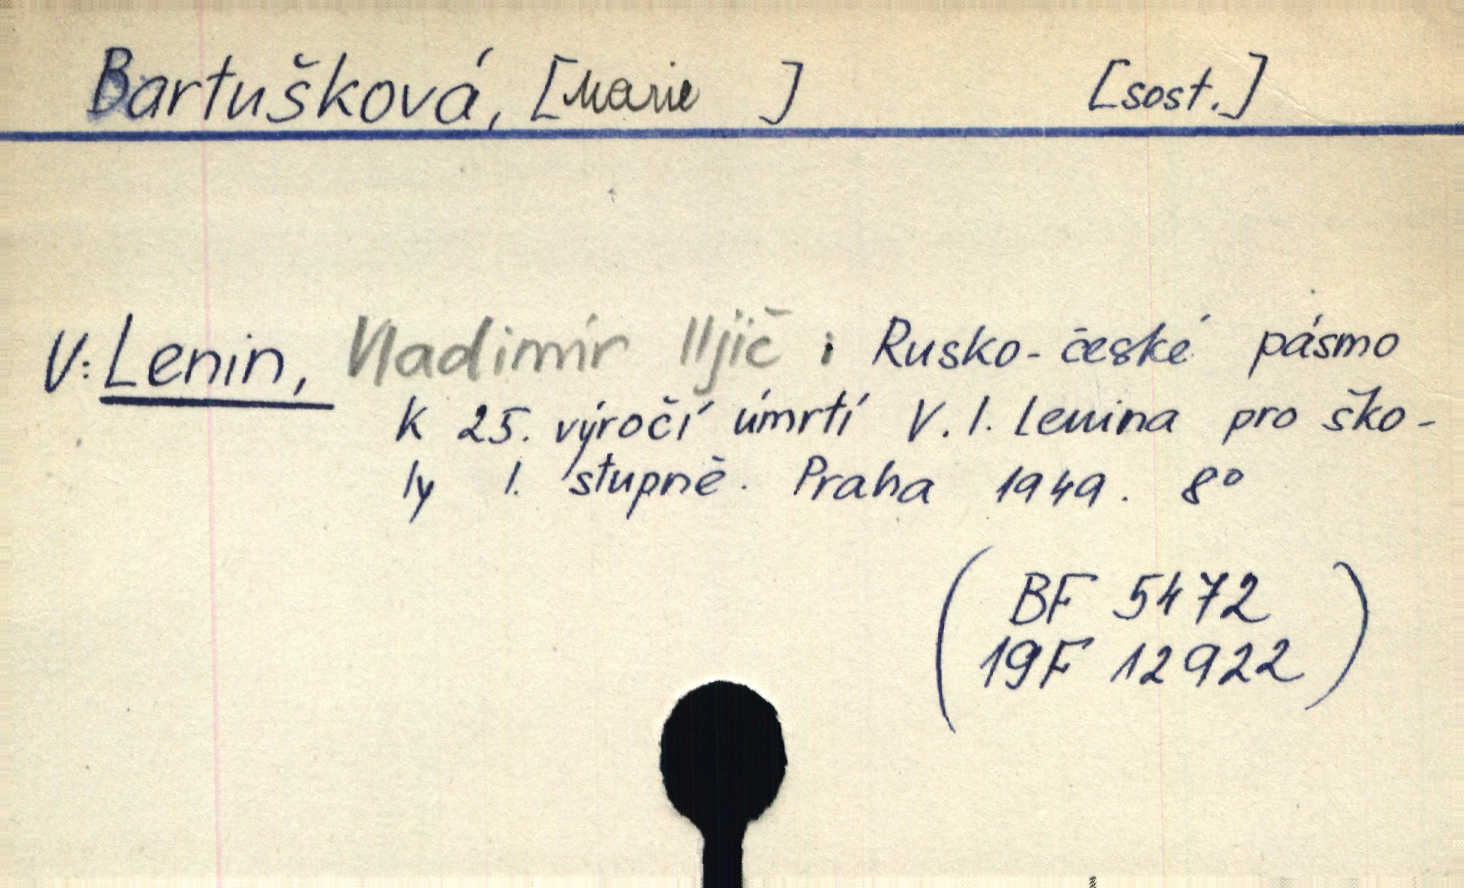 Bartušková, [Marie ] [sost.]
V: Lenin, Vladimír Iljič : Rusko-české pásmo
k 25. výročí úmrtí V. I. Lenina pro ško-
ly I. stupně. Praha 1949. 8°
( BF 5472
19F 12922 )